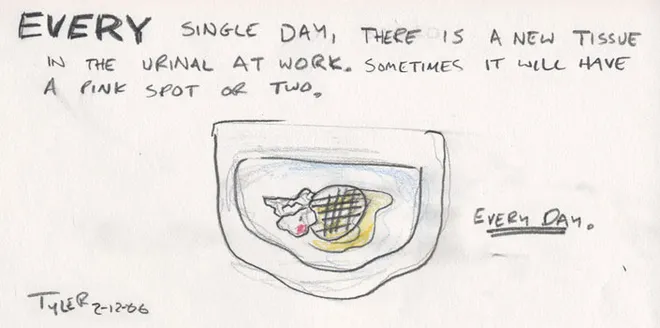 EVERY SINGLE DAY, THERE IS A NEW TISSUE
IN THE URINAL AT WORK. SOMETIMES IT WILL HAVE
A PINK SPOT OR TWO.
EVERY DAY.
TYLER 2-12-06